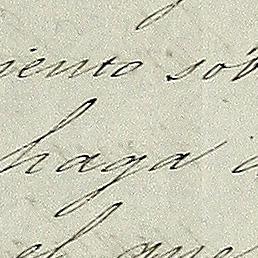 iento sob
haga
el que